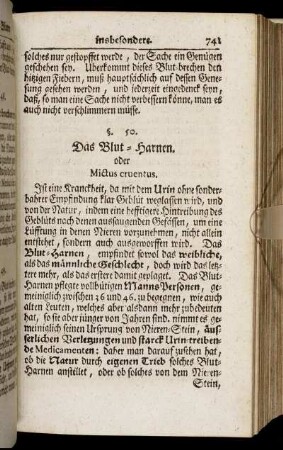 insbesondere. 741
solches nur gestopfft werde, der Sache ein Genügen
geschehen sey. Uberkommt dieses Blut-brechen den
hitzigen Fiebern, muß hauptsächlich auf dessen Gene-
sung gesehen werden, und jederzeit eingedenck seyn,
daß, so man eine Sache nicht verbessern könne, man es
auch nicht verschlimmern müsse.
§. 50.
Das Blut-Harnen.
oder
Mictus cruentus.
Ist eine Kranckheit, da mit dem Urin ohne sonder-
bahrer Empfindung klar Geblüt weglassen wird, und
von der Natur, indem eine hefftigere Hintreibung des
Geblüts nach denen aussaugenden Gefässen, um eine
Lüfftung in denen Nieren vorzunehmen, nicht allein
entstehet, sondern auch ausgeworffen wird. Das
Blut-Harnen, empfindet sowol das weibliche,
als das männliche Geschlecht, doch wird das letz-
tere mehr, als das erstere damit geplaget. Das Blut-
Harnen pflegte vollbütigen Manns Personen, ge-
meiniglich zwischen 36 und 46. zu begegnen, wie auch
alten Leuten, welches aber alsdann mehr zu bedeuten
hat, so sie aber jünger von Jahren sind. nimmt es ge-
meiniglich seinen Ursprung von Nieren-Stein, äus-
serlichen Verletzungen und starck Urin treiben-
de Medicamenten: daher man darauf zusehen hat,
ob die Natur durch eigenen Trieb solches Blut-
Harnen anstillet, oder ob solches von dem Nieren-
Stein,